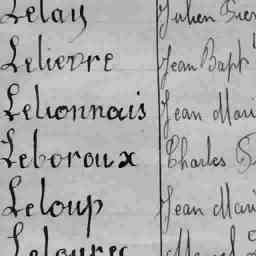 Lelay Julien
Lelievre Jean Bapt
Lelionnais Jean Mari
Leboroux Charles
Leloup Jean Mari